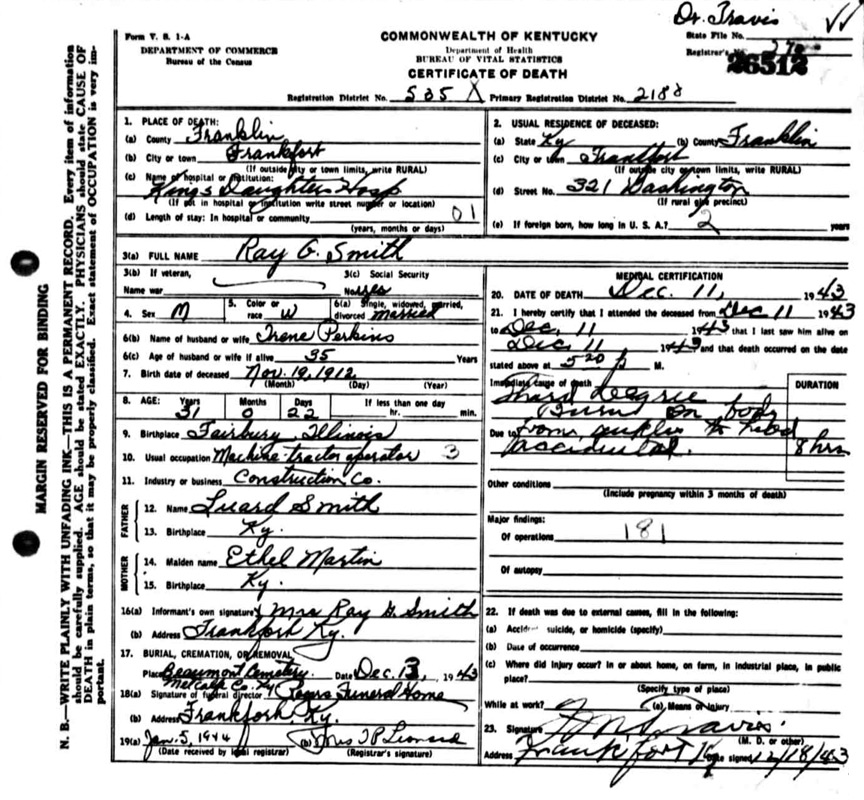 Dr. Travis
Form V. S. 1-A
DEPARTMENT OF COMMERCE
Bureau of the Census
COMMONWEALTH OF KENTUCKY
Department of Health
BUREAU OF VITAL STATISTICS
CERTIFICATE OF DEATH
State File No.
Registrar's No.
26512
Registration District No. 535 X Primary Registration District No. 2188
MARGIN RESERVED FOR BINDING
N. B.—WRITE PLAINLY WITH UNFADING INK—THIS IS A PERMANENT RECORD. Every item of information
should be carefully supplied. AGE should be stated EXACTLY. PHYSICIANS should state CAUSE OF
DEATH in plain terms, so that it may be properly classified. Exact statement of OCCUPATION is very im-
portant.
1. PLACE OF DEATH:
(a) County Franklin
(b) City or town Frankfort
(If outside city or town limits, write RURAL)
(c) Name of hospital or institution:
Kings Daughters Hosp
(If not in hospital or institution write street number or location)
(d) Length of stay: In hospital or community 01
(years, months or days)
2. USUAL RESIDENCE OF DECEASED:
(a) State Ky (b) County Franklin
(c) City or town Frankfort
(If outside city or town limits, write RURAL)
(d) Street No. 321 Washington
(If rural give precinct)
(e) If foreign born, how long in U. S. A.? 2 years
3(a) FULL NAME Ray G. Smith
3(b) If veteran, 3(c) Social Security
Name war No.
4. Sex M 5. Color or race W 6(a) Single, widowed, married, divorced married
6(b) Name of husband or wife Irene Perkins
6(c) Age of husband or wife if alive 35 Years
7. Birth date of deceased Nov. 19, 1912
(Month) (Day) (Year)
8. AGE: Years Months Days If less than one day
31 0 22 hr. min.
9. Birthplace Fairbury, Illinois
10. Usual occupation Machine-tractor operator 3
11. Industry or business Construction Co.
FATHER
12. Name Luard Smith
13. Birthplace Ky.
MOTHER
14. Maiden name Ethel Martin
15. Birthplace Ky.
16(a) Informant's own signature Mrs Ray G. Smith
(b) Address Frankfort Ky.
17. BURIAL, CREMATION, OR REMOVAL
Place Beaumont Cemetery Date Dec. 13, 1943
Metcalfe Co. Ky
18(a) Signature of funeral director Rogers Funeral Home
(b) Address Frankfort Ky.
19(a) Jan. 5, 1944 (b) Mrs T P Leonard
(Date received by local registrar) (Registrar's signature)
MEDICAL CERTIFICATION
20. DATE OF DEATH Dec. 11, 1943
21. I hereby certify that I attended the deceased from Dec 11 1943
to Dec. 11 1943 that I last saw him alive on
Dec 11 1943 and that death occurred on the date
stated above at 5 20 p M.
Immediate cause of death DURATION
Third degree
burns on body
Due to from
accidental. 8 hrs
Other conditions
(Include pregnancy within 3 months of death)
Major findings:
Of operations 181
Of autopsy
22. If death was due to external causes, fill in the following:
(a) Accident, suicide, or homicide (specify)
(b) Date of occurrence
(c) Where did injury occur? In or about home, on farm, in industrial place, in public
place?
(Specify type of place)
While at work? (e) Means of injury
23. Signature Travis
(M. D. or other)
Address Frankfort Ky Date signed 12/18/43